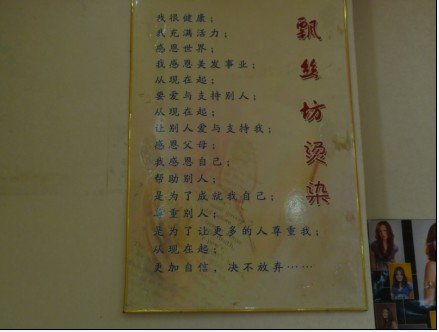 飘丝坊烫染
我很健康；
我充满活力；
感恩世界；
我感恩美发事业；
从现在起；
要爱与支持别人；
从现在起；
让别人爱与支持我；
感恩父母；
我感恩自己；
帮助别人；
是为了成就我自己；
尊重别人；
是为了让更多的人尊重我；
从现在起；
更加自信，决不放弃……